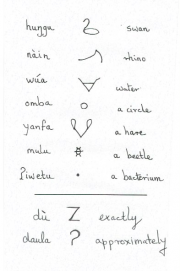 hungu swan
nàin rhino
wúa water
omba a circle
yanfa a hare
mulu a beetle
Piwetu a bacterium
dù Z exactly
daula ? approximately